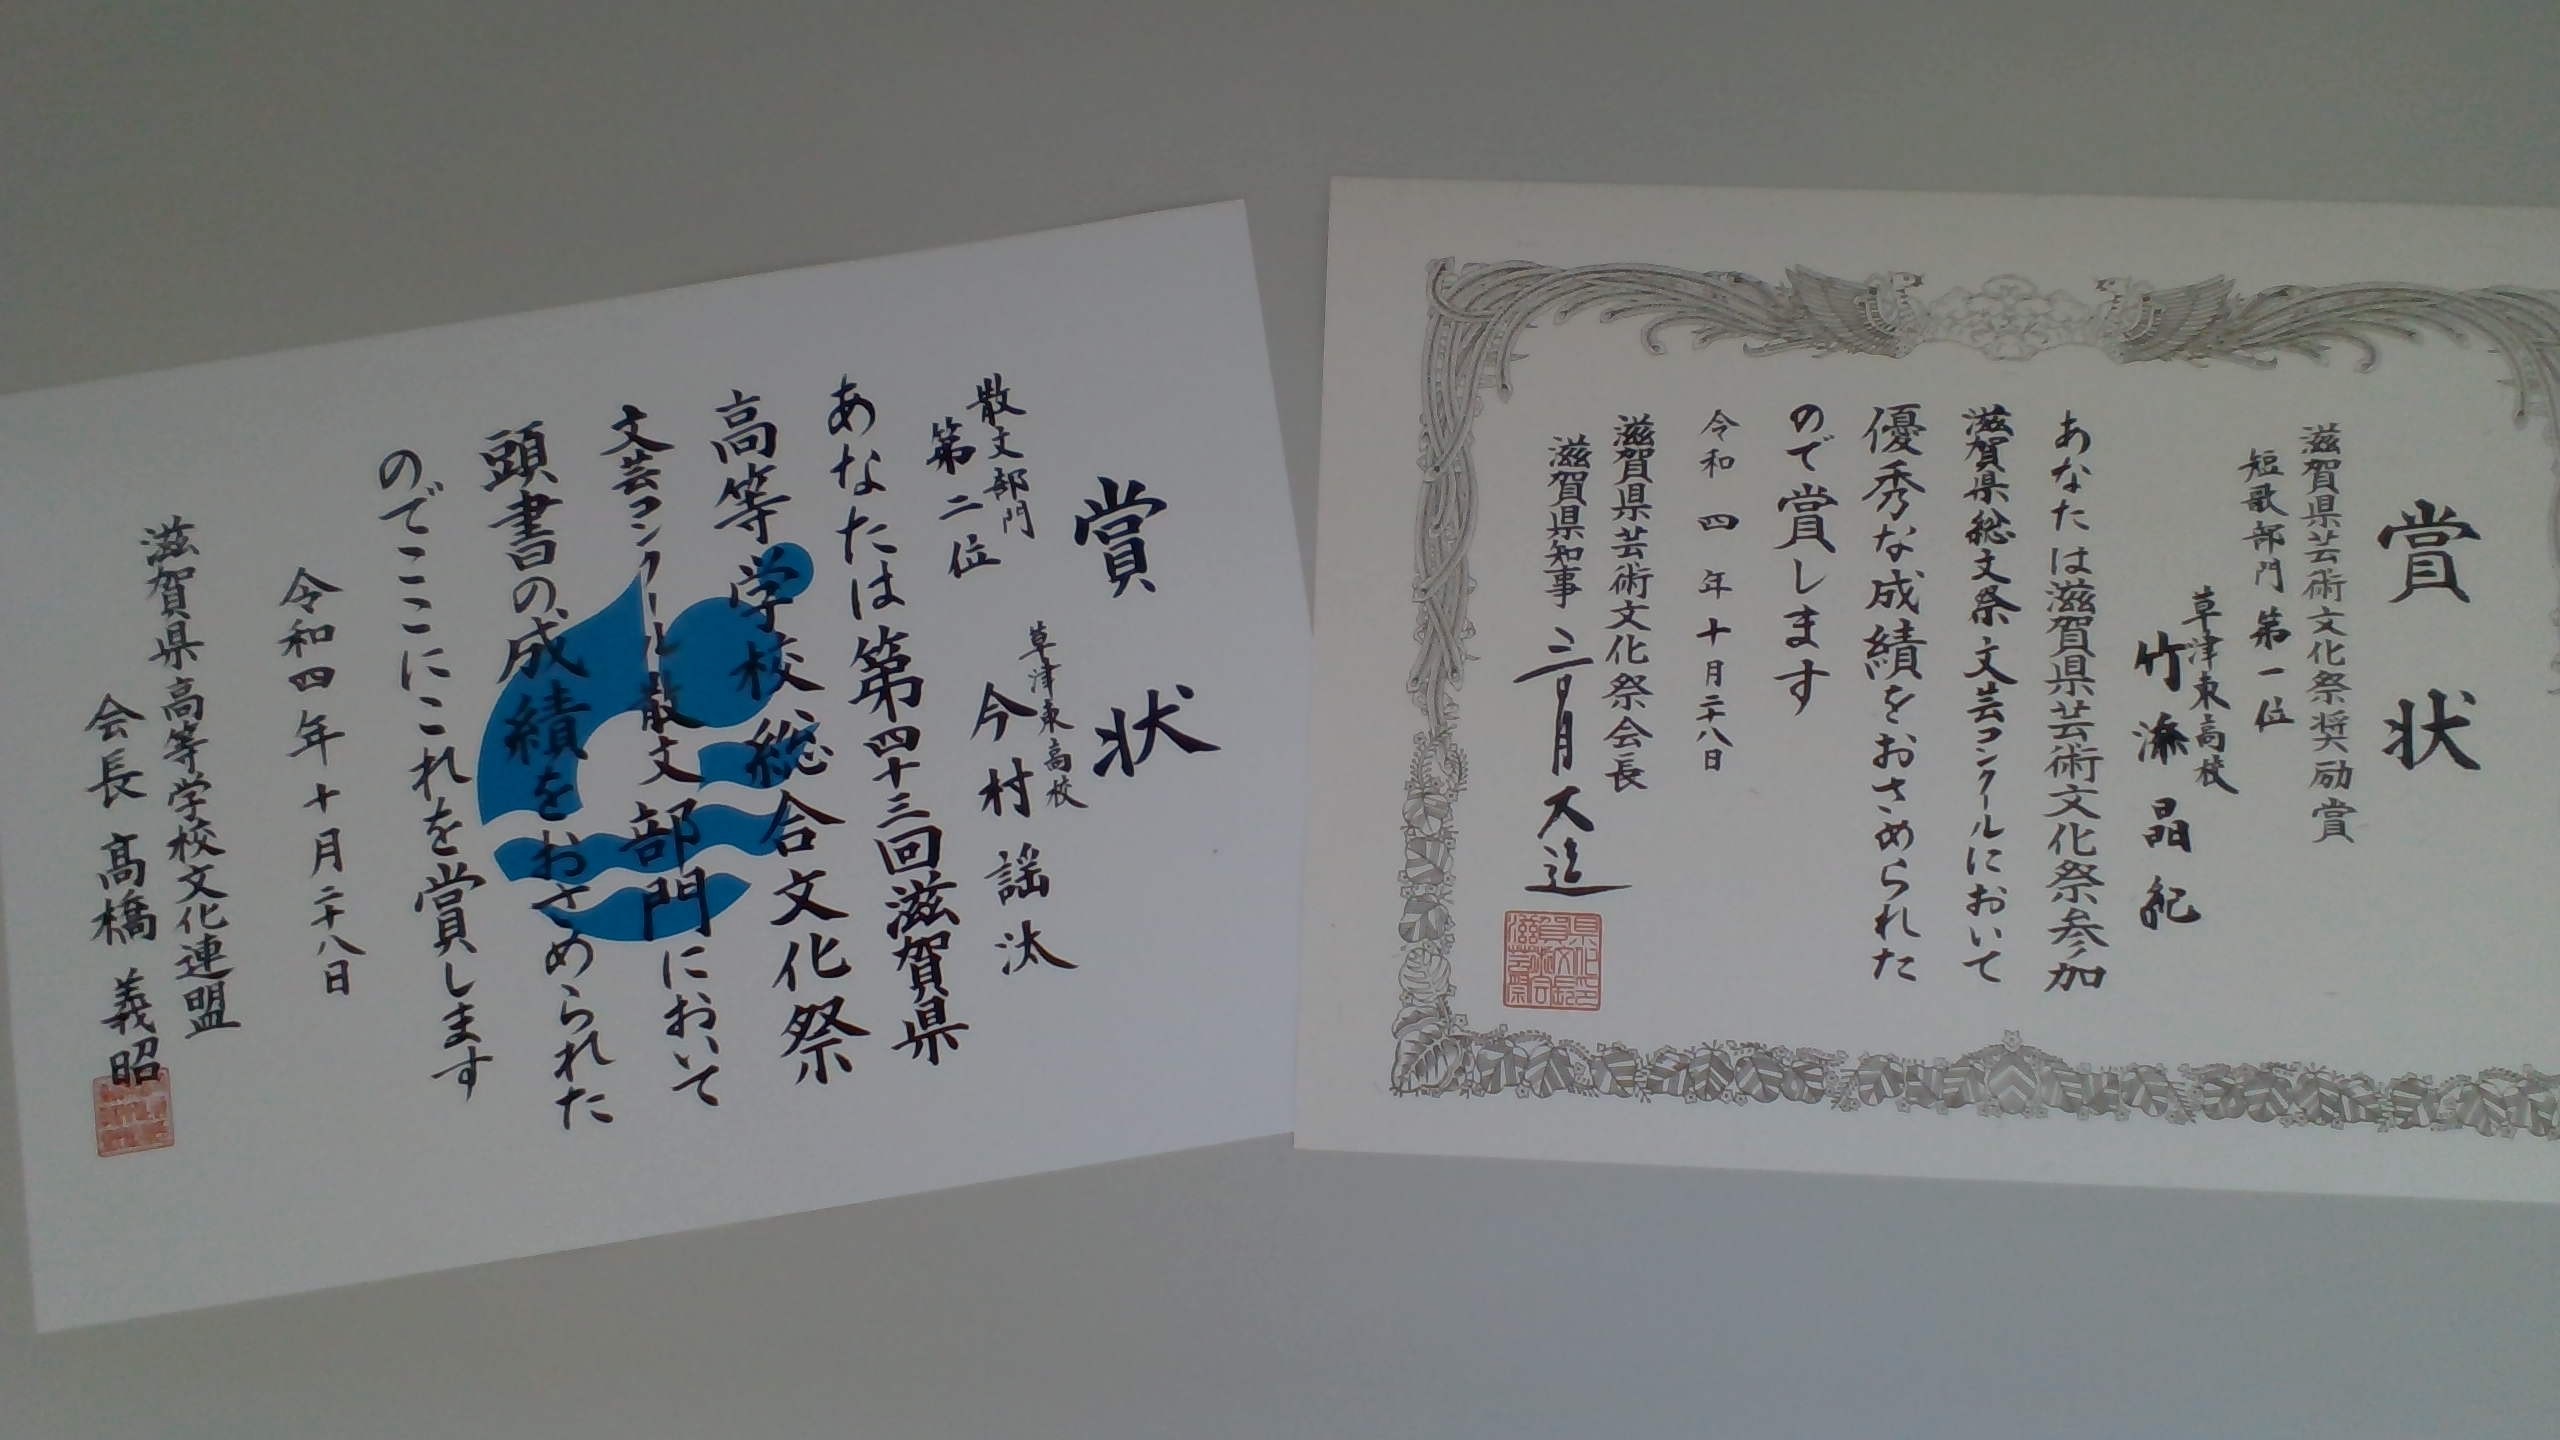 賞状
滋賀県芸術文化祭奨励賞
短歌部門 第一位
草津東高校
竹添晶紀
あなたは滋賀県芸術文化祭参加
滋賀県総文祭文芸コンクールにおいて
優秀な成績をおさめられた
ので賞します
令和四年十月二十八日
滋賀県芸術文化祭会長
滋賀県知事 三日月大造
賞状
散文部門
第二位
草津東高校
今村謡汰
あなたは第四十三回滋賀県
高等学校総合文化祭
文芸コンクール散文部門において
頭書の成績をおさめられた
のでここにこれを賞します
令和四年十月二十八日
滋賀県高等学校文化連盟
会長 髙橋義昭